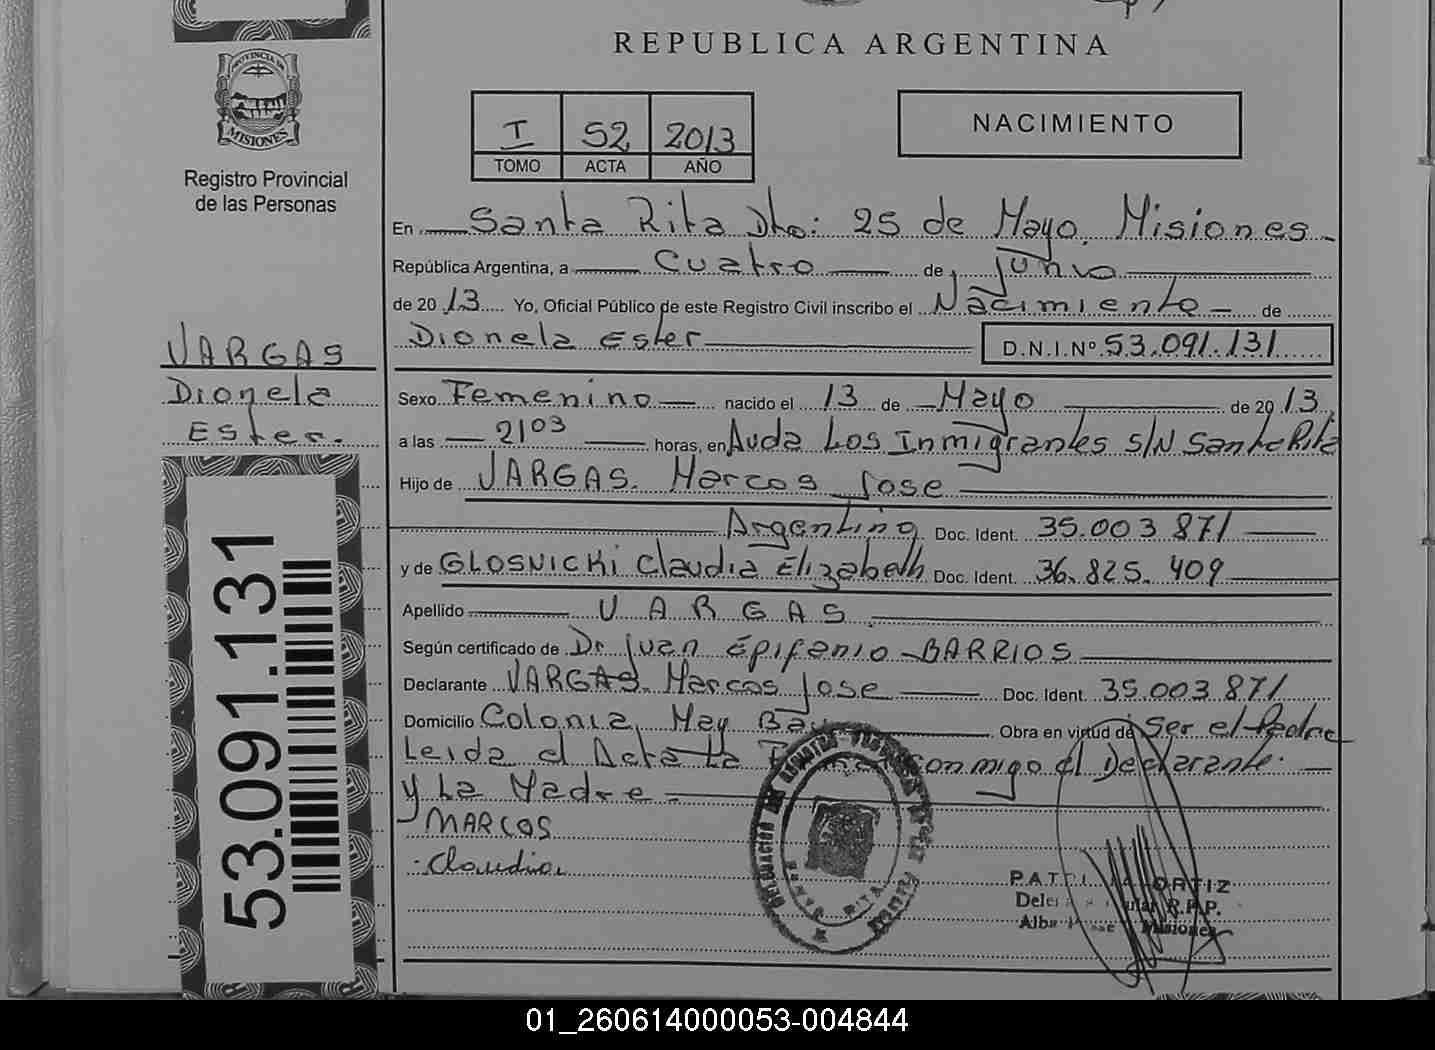 REPUBLICA ARGENTINA
PROVINCIA DE
MISIONES
Registro Provincial
de las Personas
I 52 2013
TOMO ACTA AÑO
NACIMIENTO
En Santa Rita Dto: 25 de Mayo, Misiones
República Argentina, a Cuatro de Junio
de 2013 Yo, Oficial Público de este Registro Civil inscribo el Nacimiento de
Dionela Ester D.N.I.Nº 53.091.131
VARGAS
Dionela
Ester.
Sexo Femenino nacido el 13 de Mayo de 2013
a las 2103 horas, en Avda Los Inmigrantes S/N Santa Rita
Hijo de VARGAS. Marcos Jose
Argentino Doc. Ident. 35.003.871
y de GLOSNICKi Claudia Elizabeth Doc. Ident. 36.825.409
Apellido VARGAS
Según certificado de Dr Juan Epifanio BARRIOS
Declarante VARGAS. Marcos Jose Doc. Ident. 35.003.871
Domicilio Colonia May Obra en virtud de Ser el Padre
Leida el Acta La conmigo el Declarante.
y La Madre
MARCOS
Claudia
53.091.131
DELEGACION
SANTA RITA
ORTIZ
R.P.P.
Misiones
01_260614000053-004844